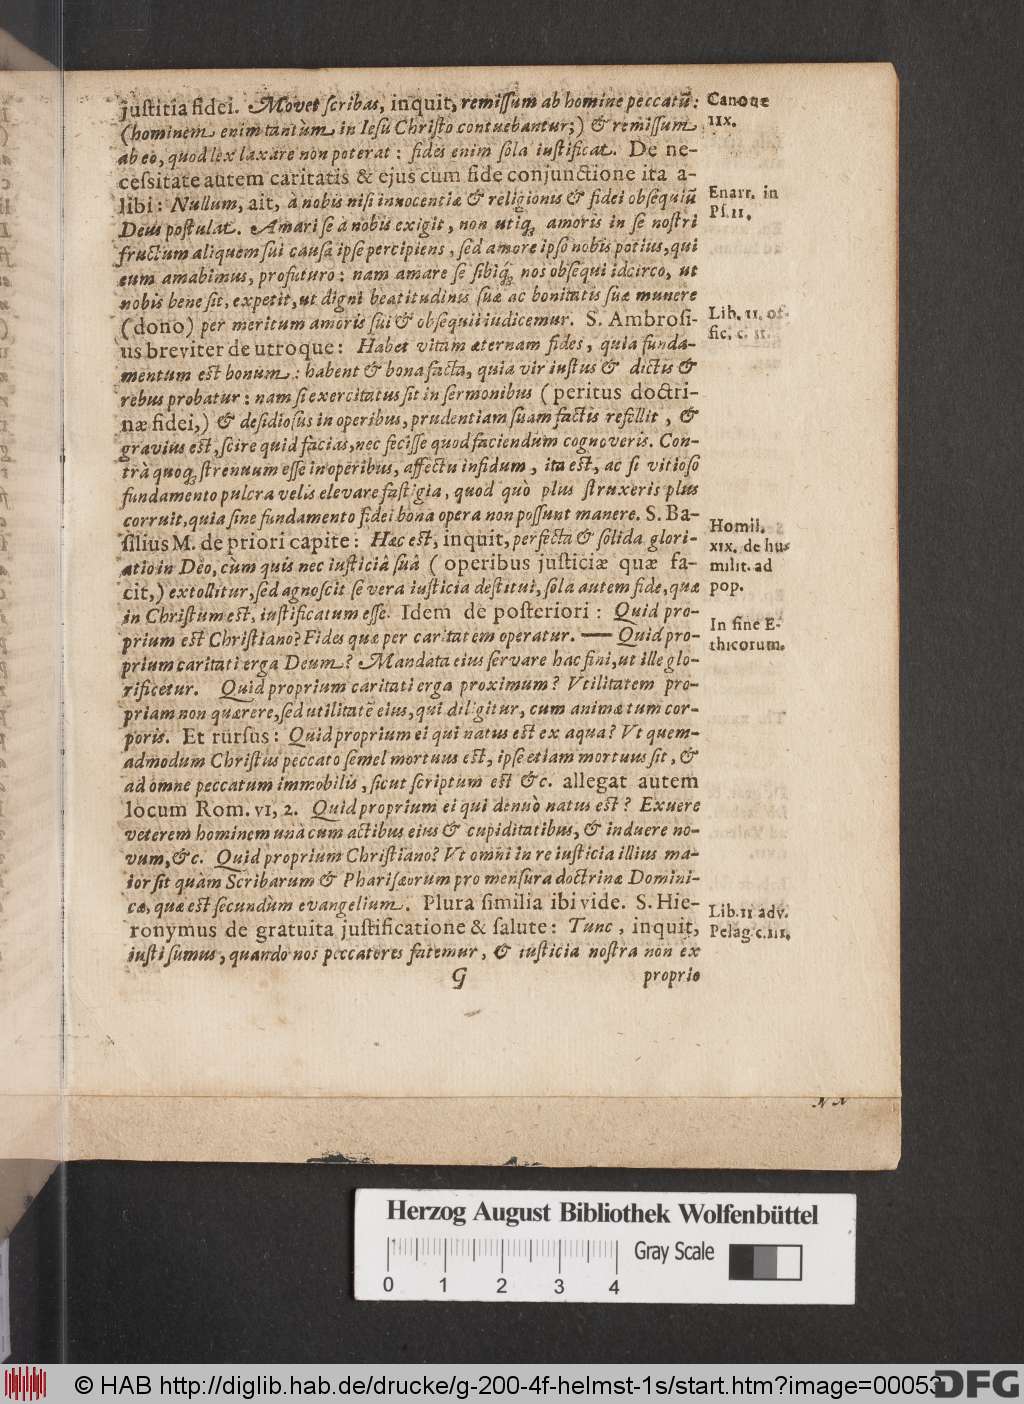 justitia fidei. Movet scribas, inquit, remissum ab homine peccatũ:
(hominem enim tantùm in Iesu Christo contuebantur;) & remissum
ab eo, quod lex laxare non poterat: fides enim sola iustificat. De ne-
cessitate autem caritatis & ejus cum fide conjunctione ita a-
libi: Nullum, ait, à nobis nisi innocentiæ & religionis & fidei obsequiũ
Deus postulat. Amari se à nobis exigit, non utiq; amoris in se nostri
fructum aliquem sui causa ipse percipiens, sed amore ipso nobis potius, qui
eum amabimus, profuturo: nam amare se sibiq́; nos obsequi idcirco, ut
nobis bene sit, expetit, ut digni beatitudinis suæ ac bonitatis suæ munere
(dono) per meritum amoris sui & obsequii iudicemur. S. Ambrosi-
us breviter de utroque: Habet vitam æternam fides, quia funda-
mentum est bonum: habent & bona facta, quia vir iustus & dictis &
rebus probatur: nam si exercitatus sit in sermonibus (peritus doctri-
næ fidei,) & desidiosus in operibus, prudentiam suam factis refellit, &
gravius est, scire quid facias, nec fecisse quod faciendum cognoveris. Con-
trà quoq; strenuum esse in operibus, affectu infidum, ita est, ac si vitioso
fundamento pulcra velis elevare fastigia, quod quò plus struxeris plus
corruit, quia sine fundamento fidei bona opera non possunt manere. S. Ba-
silius M. de priori capite: Hæc est, inquit, perfecta & solida glori-
atio in Deo, cùm quis nec iusticiâ suâ (operibus justiciæ quæ fa-
cit,) extollitur, sed agnoscit se vera iusticia destitui, sola autem fide, quæ
in Christum est, iustificatum esse. Idem de posteriori: Quid pro-
prium est Christiano? Fides quæ per caritatem operatur. — Quid pro-
prium caritati erga Deum? Mandata eius servare hac fini, ut ille glo-
rificetur. Quid proprium caritati erga proximum? Vtilitatem pro-
priam non quærere, sed utilitatẽ eius, qui diligitur, cum animæ tum cor-
poris. Et rursus: Quid proprium ei qui natus est ex aqua? Vt quem-
admodum Christus peccato semel mortuus est, ipse etiam mortuus sit, &
ad omne peccatum immobilis, sicut scriptum est &c. allegat autem
locum Rom. VI, 2. Quid proprium ei qui denuò natus est? Exuere
veterem hominem unà cum actibus eius & cupiditatibus, & induere no-
vum, &c. Quid proprium Christiano? Vt omni in re iusticia illius ma-
ior sit quàm Scribarum & Pharisæorum pro mensura doctrinæ Domini-
cæ, quæ est secundùm evangelium. Plura similia ibi vide. S. Hie-
ronymus de gratuita justificatione & salute: Tunc, inquit,
iusti sumus, quando nos peccatores fatemur, & iusticia nostra non ex
G
proprio
Canone
IIX.
Enarr. in
Ps. 11.
Lib. II. of-
fic. c. II.
Homil.
XIX. de hu-
milit. ad
pop.
In fine E-
thicorum.
Lib. II adv.
Pelag c. III.
Herzog August Bibliothek Wolfenbüttel
Gray Scale
0 1 2 3 4
© HAB http://diglib.hab.de/drucke/g-200-4f-helmst-1s/start.htm?image=00053
DFG